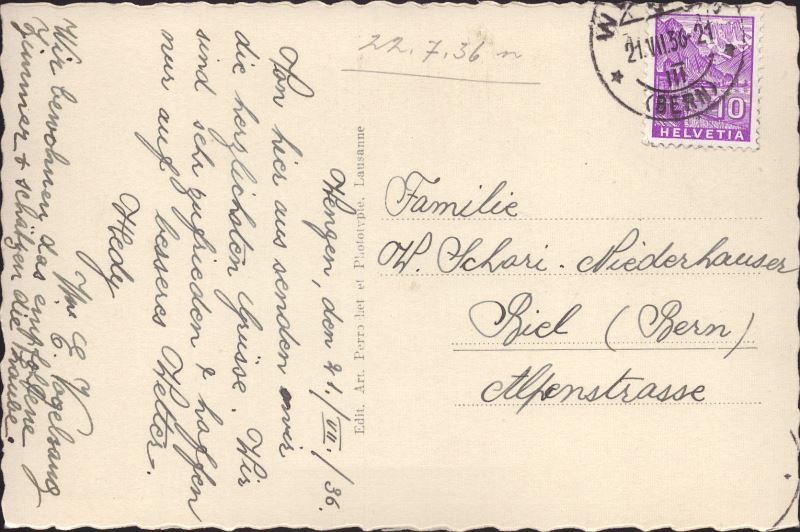 Wengen, den 21./VII./36.
Von hier aus senden wir
die herzlichsten Grüsse. Wir
sind sehr zufrieden & hoffen
nur auf besseres Wetter.
Hedy
E. Vogelsang
Wir bewohnen das empfohlene
Zimmer & schätzen die
Edit. Art. Perrochet et Phototypie, Lausanne
22.7.36
21.VII.36-21
III
(BERN)
10
HELVETIA
Familie
W. Schori-Niederhauser
Biel (Bern)
Alpenstrasse